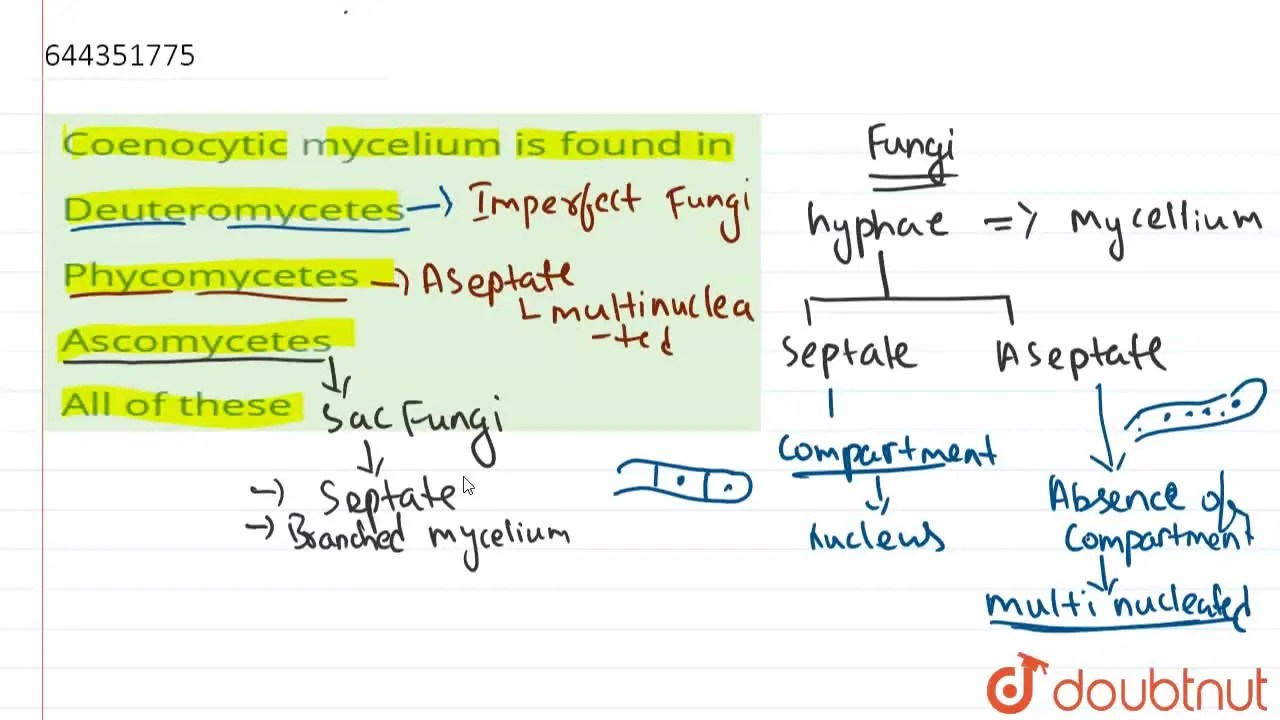 644351775
Coenocytic mycelium is found in
Deuteromycetes → Imperfect Fungi
Phycomycetes → Aseptate
multinuclea
-ted
Ascomycetes
All of these
Sac Fungi
→ Septate
→ Branched mycelium
Fungi
hyphae => Mycellium
Septate Aseptate
Compartment
nucleus
Absence of
Compartment
multi nucleated
doubtnut